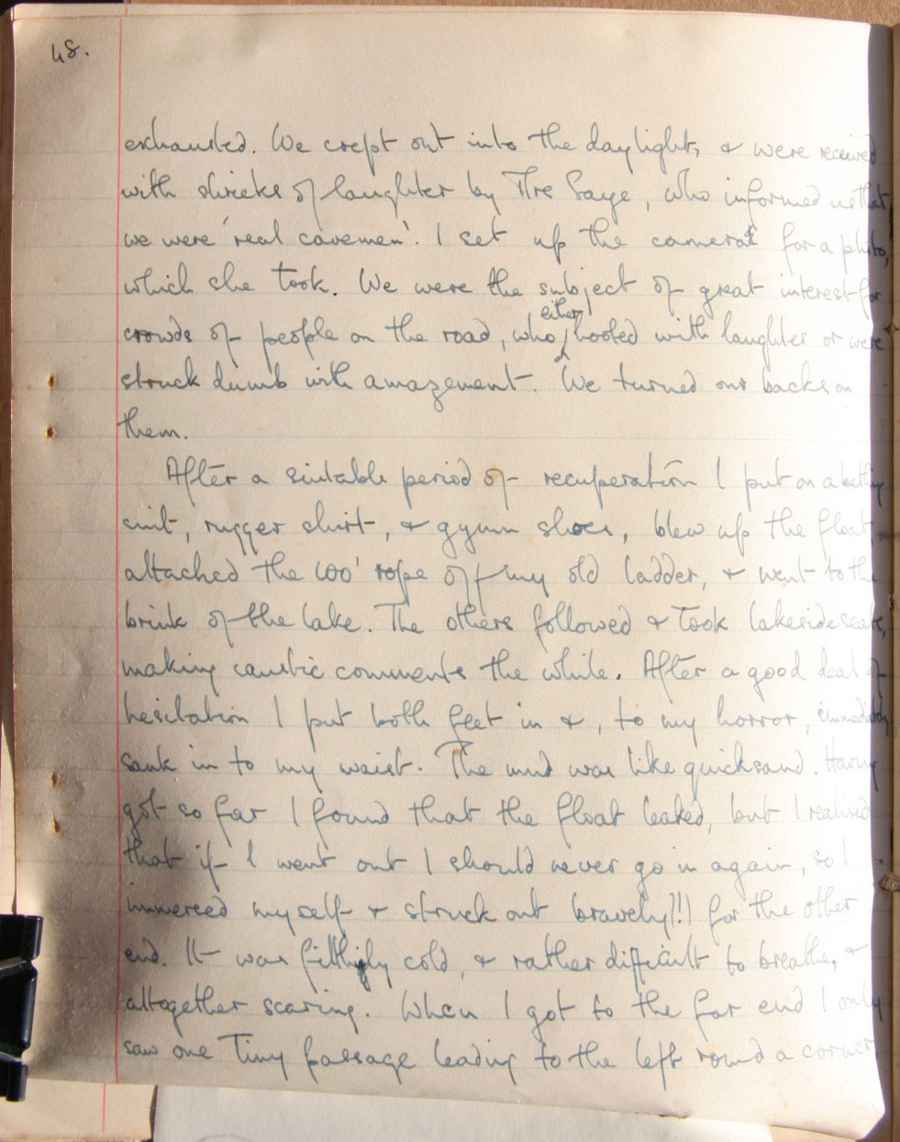 48.
exhausted. We crept out into the daylight, & were received
with shrieks of laughter by Mrs Gaye, who informed us that
we were 'real cavemen'. I set up the camera for a photo,
which she took. We were the subject of great interest for
crowds of people on the road, who either hooted with laughter or were
struck dumb with amazement. We turned our backs on
them.
After a suitable period of recuperation I put on a bathing
suit, rugger shirt, & gymn shoes, blew up the float,
attached the 100' rope off my old ladder, & went to the
brink of the lake. The others followed & took lakeside seats,
making caustic comments the while. After a good deal of
hesitation I put both feet in &, to my horror, immediately
sank in to my waist. The mud was like quicksand. Having
got so far I found that the float leaked, but I realised
that if I went out I should never go in again, so I
immersed myself & struck out bravely(!!) for the other
end. It was filthily cold, & rather difficult to breathe, &
altogether scaring. When I got to the far end I only
saw one tiny passage leading to the left round a corner